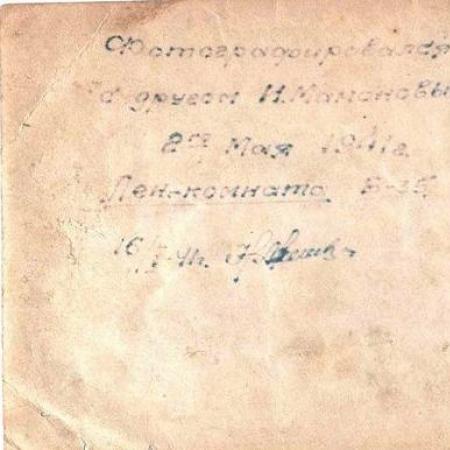 Фотографировался
с другом И. Мамоновы
2го Мая 1941 г.
Лен-комната
16/